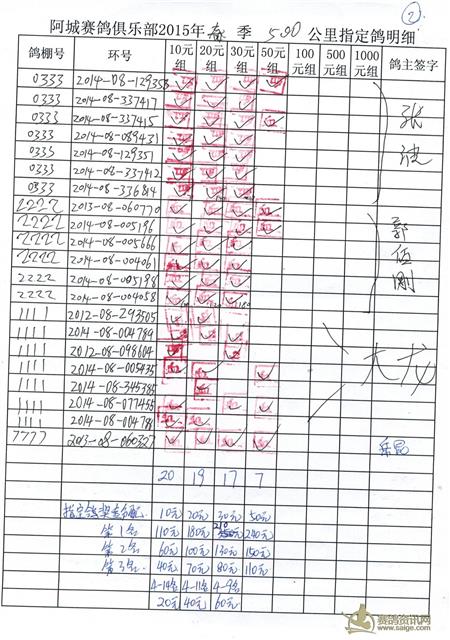 ②
阿城赛鸽俱乐部2015年春季 500 公里指定鸽明细
鸽棚号 环号 10元组 20元组 30元组 50元组 100元组 500元组 1000元组 鸽主签字
0333 2014-08-129353
0333 2014-08-337417
0333 2014-08-337415
0333 2014-08-089431
0333 2014-08-129351
0333 2014-08-337412
0333 2014-08-336814
2222 2013-08-060770
2222 2014-08-005196
2222 2014-08-005666
2222 2014-08-004061
2222 2014-08-005198
2222 2014-08-004058
郭恒刚
1111 2012-08-293505
1111 2014-08-004789
1111 2012-08-098604
1111 2014-08-005435
1111 2014-08-345385
1111 2014-08-077455
1111 2014-08-004788
大龙
7777 2013-08-060327
20 19 17 7
10元 20元 30元 50元
第1名 110元 180元 210元 240元
第2名 60元 100元 130元 150元
第3名 40元 70元 80元 110元
4-14名 4-11名 4-9名
20元 40元 60元
赛鸽资讯网
www.saige.com